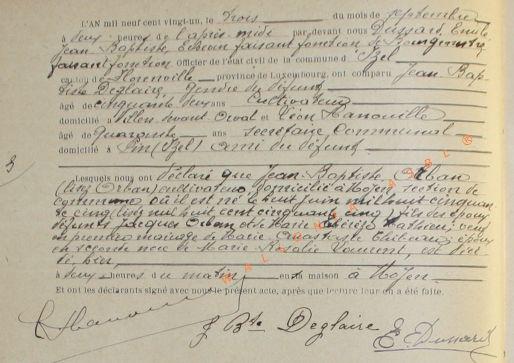 L'AN mil neuf cent vingt-un, le trois du mois de septembre
à deux heures de l'après-midi par devant nous Dussard, Emile
Jean Baptiste, Echevin faisant fonction de Bourgmestre,
faisant fonction Officier de l'état civil de la commune d'Izel
canton de Florenville province de Luxembourg, ont comparu Jean-Bap-
tiste Deglaire, gendre du défunt
âgé de cinquante deux ans Cultivateur
domicilié à Villers devant Orval et Léon Hanouille
âgé de quarante ans secrétaire communal
domicilié à Pin (Izel) ami du défunt
Lesquels nous ont déclaré que Jean-Baptiste Orban
(lisez Orban) cultivateur, domicilié à Moyen, section de
commune où il est né le huit juin mil huit cinquan-
te cinq (lisez mil huit cent cinquante cinq) fils des époux
défunts Jacques Orban et Marie Thérèse Mathieu; veuf
en premier mariage de Marie époux
en seconde noce de Marie Rosalie est décé-
dé hier
à deux heures du matin en sa maison à Moyen.
Et ont les déclarants signé avec nous le présent acte, après que lecture leur en a été faite.
J. Bte Deglaire
E. Dussard